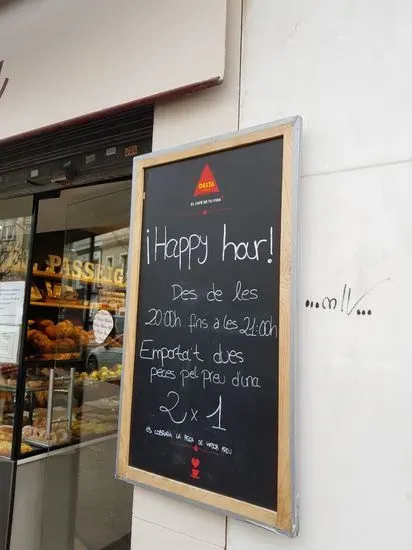 DELTA
EL CAFÉ DE TU VIDA
¡Happy hour!
Des de les
20:00h fins a les 21:00h
Emporta't dues
peces pel preu d'una
2x1
ES COBRARÀ LA PEÇA DE MAJOR PREU